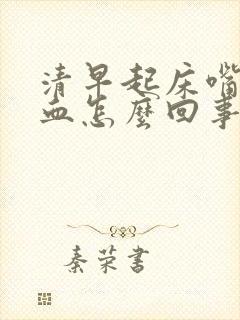 清早起床嘴
血怎麼回事
秦荣書